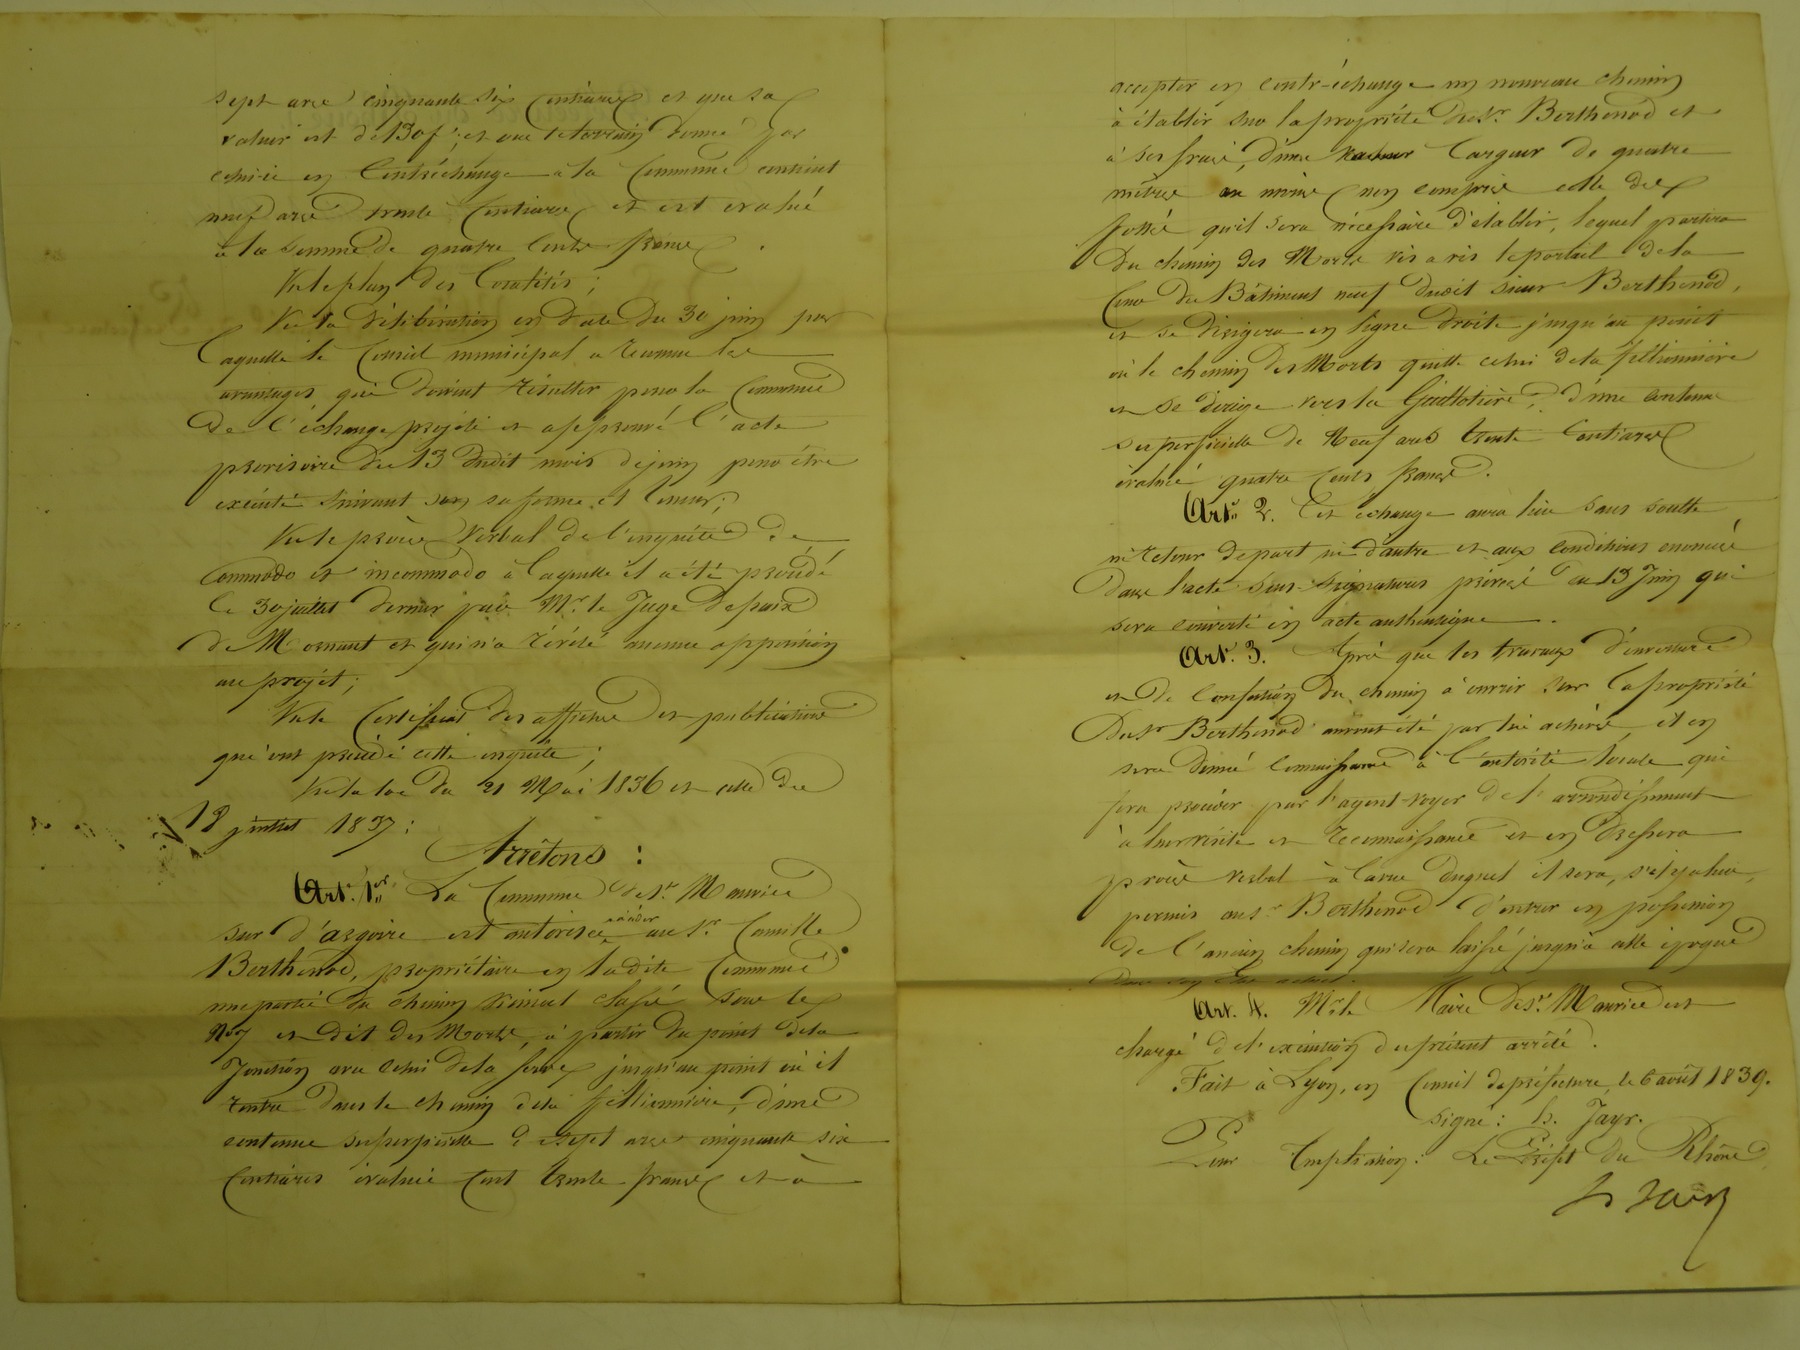 sept ares cinquante six centiares et que sa
valeur est de 130 f; et que le terrain donné par
celui-ci en contréchange à la Commune contient
neuf ares trente Centiares et est évalué
à la somme de quatre Cents francs.
Vu le plan des Localités;
Vu la délibération en date du 30 juin par
laquelle le Conseil municipal a reconnu les
avantages qui doivent résulter pour la Commune
de l'échange projeté et approuvé l'acte
provisoire du 13 dudit mois de juin pour être
exécuté suivant sa forme et teneur;
Vu le procès Verbal de l'enquête de
Commodo et incommodo à laquelle il a été procédé
le 30 juillet dernier par Mr. le Juge de paix
de Mornant et qui n'a révélé aucune opposition
au projet;
Vu le Certificat des affiches et publications
qui ont précédé cette enquête;
Vu la loi du 21 Mai 1836 et celle du
18 juillet 1837:
Arrêtons:
Art. 1er. La Commune de St. Maurice
sur d'argoire est autorisée céder au Sr. Camille
Berthenod, propriétaire en ladite Commune
une partie du chemin vicinal classé sous le
No 7 et dit des Morts, à partir du point de la
Jonction avec celui de la serve jusqu'au point où il
rentre dans le chemin de la fillionnière, d'une
contenue superficielle de sept ares cinquante six
Centiares évaluée Cent trente francs et à
accepter en contr-échange un nouveau chemin
à établir sur la propriété du Sr. Berthenod et
à ses frais, d'une largeur de quatre
mètres au moins non compris celle des
fossés qu'il sera nécessaire d'établir, lequel partira
du chemin des Morts vis a vis le portail de la
Cour du Bâtiment neuf dudit sieur Berthenod,
et se dirigera en ligne droite jusqu'au point
où le chemin des Morts quitte celui de la fillionnière
et se dirige vers la Guillotière, d'une contenue
superficielle de Neuf ares trente Centiares
évalué quatre Cents francs.
Art. 2. Cet échange aura lieu sans soulte
ni retour de part ni d'autre et aux conditions énoncées
dans l'acte sous-signatures privées du 13 Juin qui
sera converti en acte authentique.
Art. 3. Après que les travaux d'ouverture
et de Confection du chemin à ouvrir sur la propriété
du Sr Berthenod auront été par lui achevés, il en
sera donné connaissance à l'autorité locale qui
fera procéder par l'agent-voyer de l'arrondissement
à leur visite et reconnaissance et en dressera
procès verbal à la vue duquel il sera, s'il y a lieu,
permis au Sr. Berthenod d'entrer en possession
de l'ancien chemin qui sera laissé jusqu'à cette époque
dans son état actuel.
Art. 4. Mr. le Maire de St. Maurice est
chargé de l'exécution du présent arrêté.
Fait à Lyon, en Conseil de préfecture, le 6 août 1839.
signé: h. Jayr.
Pour Ampliation: Le Préfet du Rhône
h Jayr